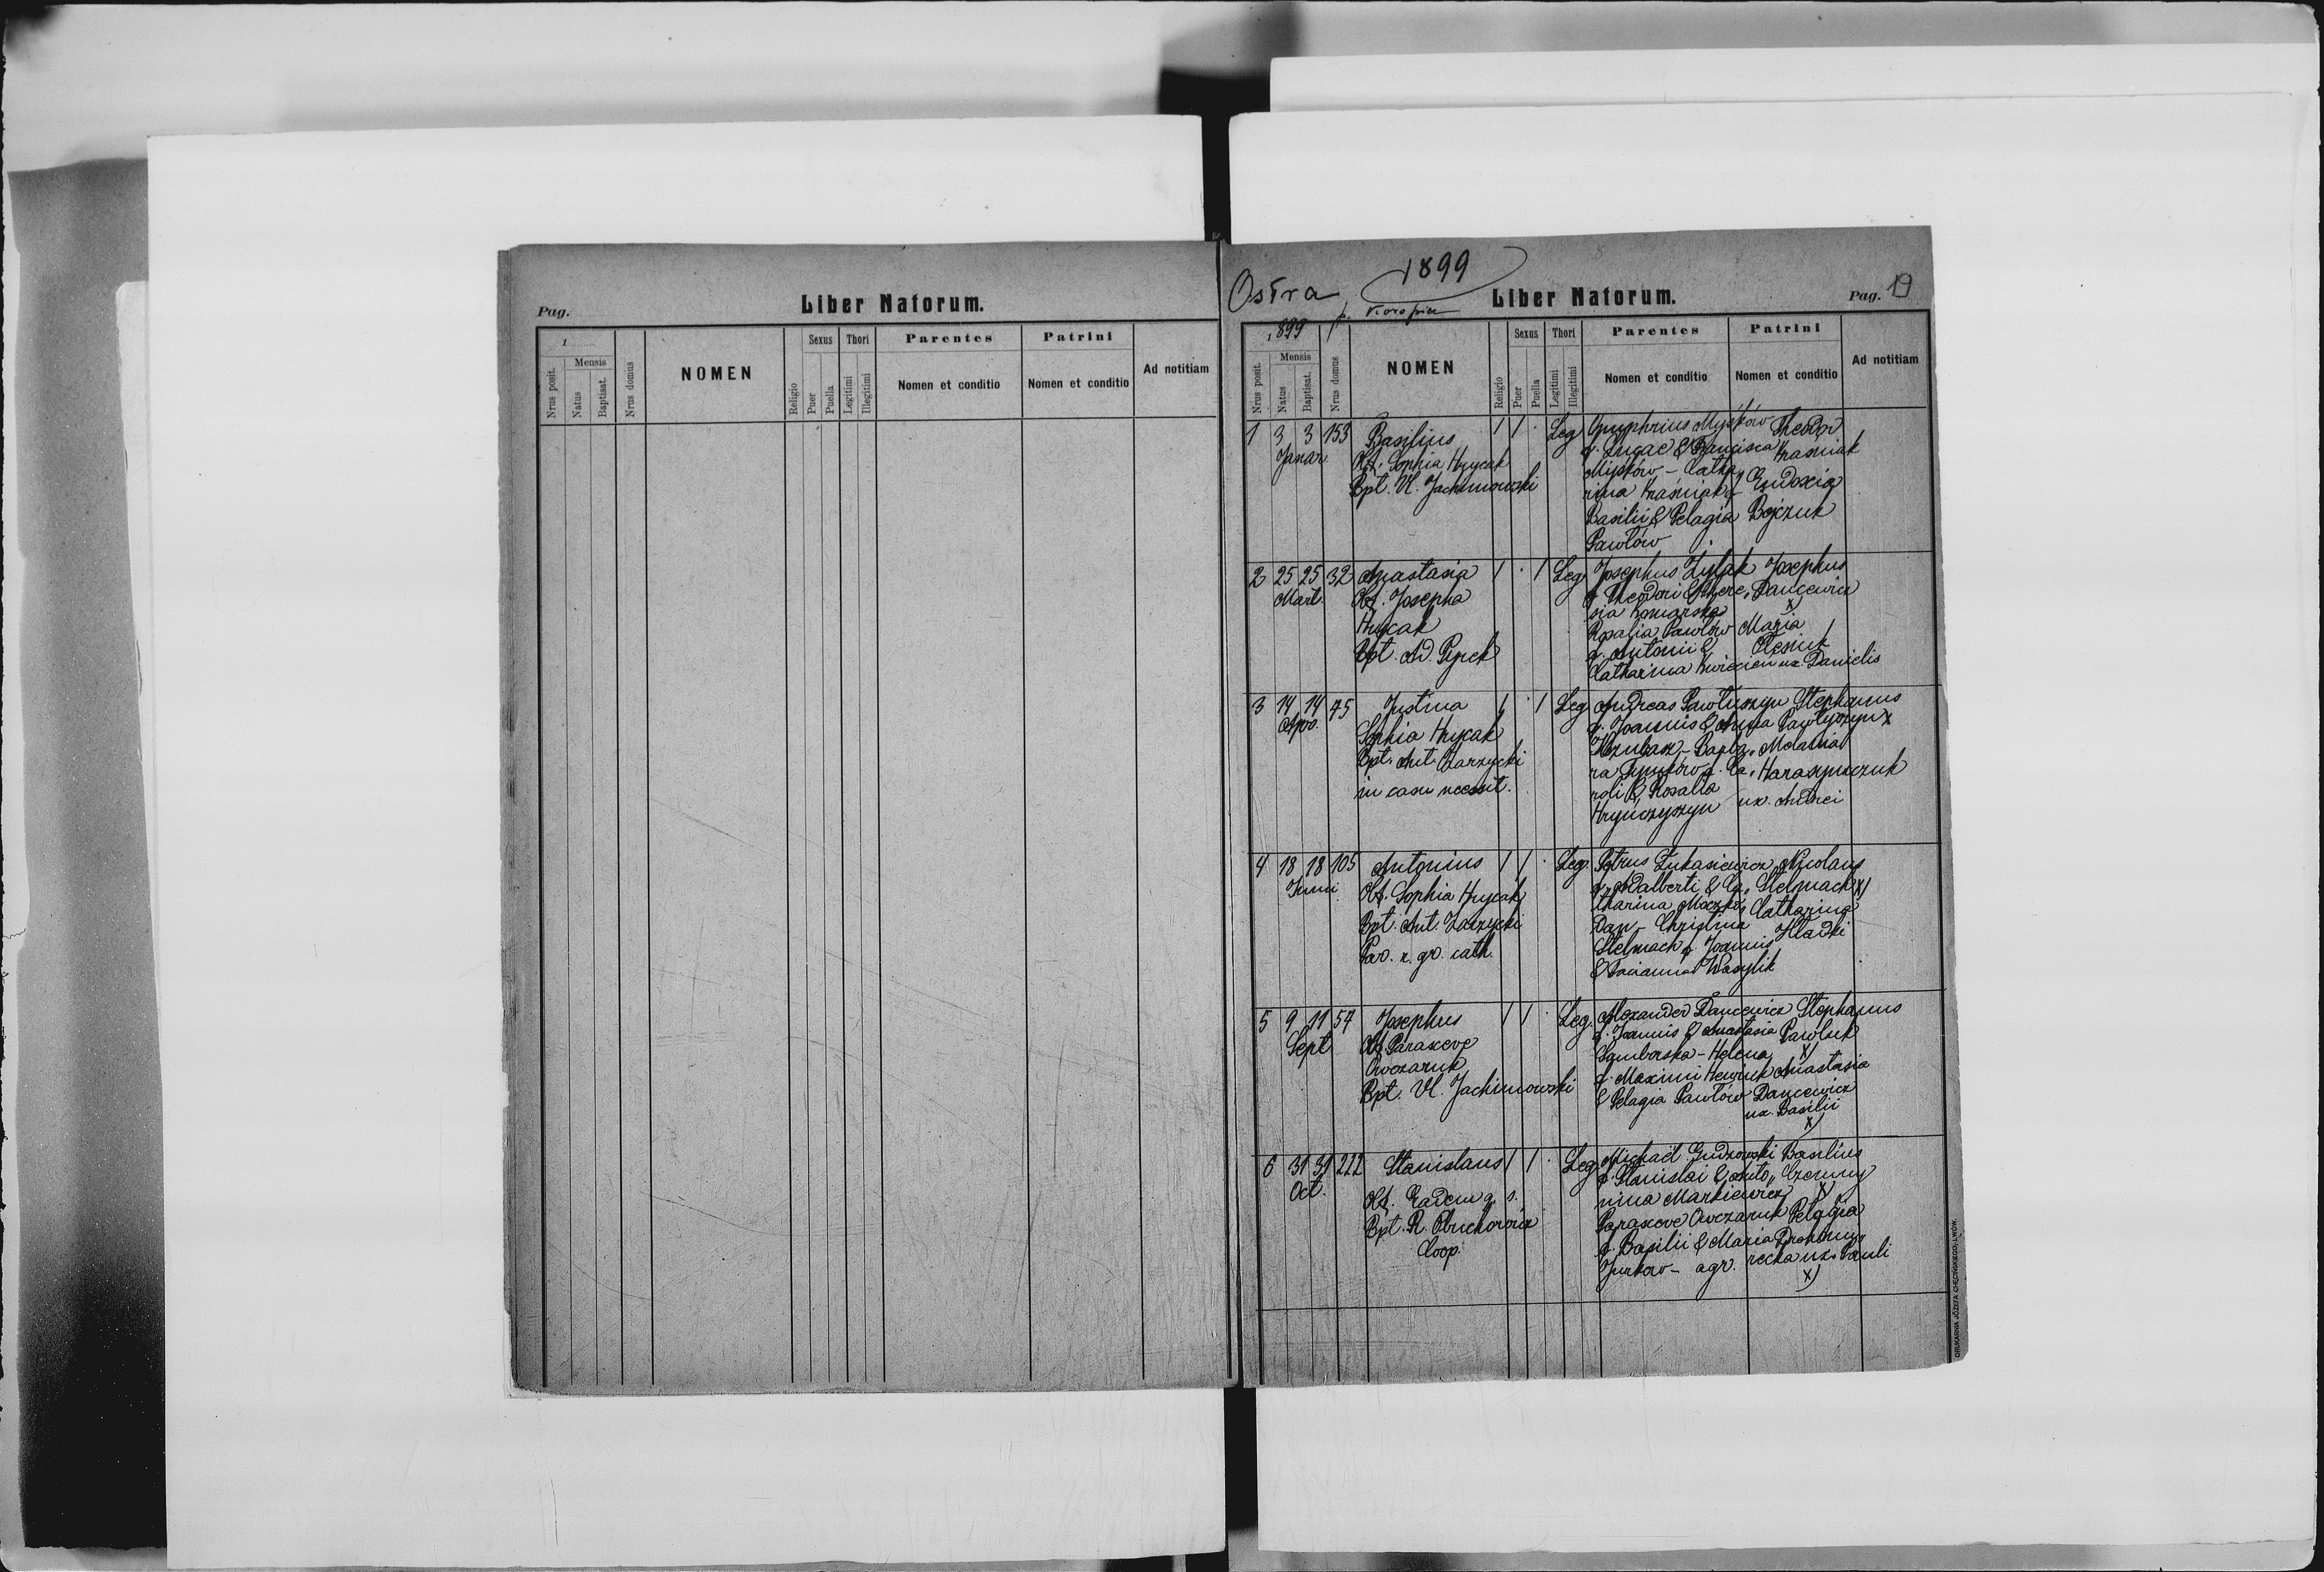 Pag.
Liber Natorum.
1
Nrus posit.
Mensis
Natus
Baptisat.
Nrus domus
NOMEN
Religio
Sexus
Puer
Puella
Thori
Legitimi
Illegitimi
Parentes
Nomen et conditio
Patrini
Nomen et conditio
Ad notitiam
Ostra
1899
p. Koropiec
Liber Natorum.
Pag. 19
1899
Nrus posit.
Mensis
Natus
Baptisat.
Nrus domus
NOMEN
Religio
Sexus
Puer
Puella
Thori
Legitimi
Illegitimi
Parentes
Nomen et conditio
Patrini
Nomen et conditio
Ad notitiam
1 3 3 153
Januar
Basilius
Obst. Sophia Hrycak
Bpt. Vl. Jachimowski
1 1 . Leg
Onuphrius Myśków
f. Lucae & Francisca
Myśków - Catha,
rina Kraśniak f.
Basilii & Pelagia
Pawłów
Theodor
Kraśniak
Eudoxia
Bojczuk
2 25 25 32
Mart.
Anastasia
Obst. Josepha
Hrycak
Bpt. Ad.
1 . 1 Leg
Josephus Żyłak
f. Theodori & There,
sia Komarska
Rosalia Pawłów
f. Antonii &
Catharina Kwiecień
Josephus
Dancewicz
x)
Maria
Olesiuk
ux. Danielis
3 14 14 75
Apr.
Justina
Sophia Hrycak
Bpt. Ant. Zarzycki
in casu necessit.
1 . 1 Leg
Andreas Pawłyszyn
f. Joannis & Anna
- Barba,
ra f. Ca,
roli & Rosalia
Hryńczyszyn
Stephanus
Pawłyszyn x
Melania
Harasymczuk
ux. Andrei
4 18 18 105
Junii
Antonius
Obst. Sophia Hrycak
Bpt. Ant. Zarzycki
Par. r. gr. cath.
1 1 . Leg.
Petrus Łukasiewicz
f. Adalberti & Ca,
tharina Moczko,
Dan - Christina
Stelmach f. Joannis
& Marianna Wasylik
Nicolaus
Stelmach x)
Catharina
Hładki
5 9 11 57
Sept
Josephus
Obst. Parasceve
Owczaruk
Bpt. Vl. Jachimowski
1 1 . Leg.
Alexander Dancewicz
f. Joannis & Anastasia
Samborska - Helena
f. Maximi Hewriuk
& Pelagia Pawłów
Stephanus
Pawluk
x)
Anastasia
Dancewicz
ux. Basilii
x)
6 31 31 222
Oct.
Stanislaus
Obst. Eadem q. s.
Bpt. R. Obuchowicz
Coop.
1 1 . Leg.
Michaël Gudzowski
f. Stanislai & Anto,,
nina Markiewicz
Parasceve Owczaruk
f. Basilii & Maria
Jurków - agr.
Basilius
Czorny
x)
Pelagia
Drohomy,
recka ux. Pauli
x)
DRUKARNIA JÓZEFA CHĘCIŃSKIEGO, LWÓW.